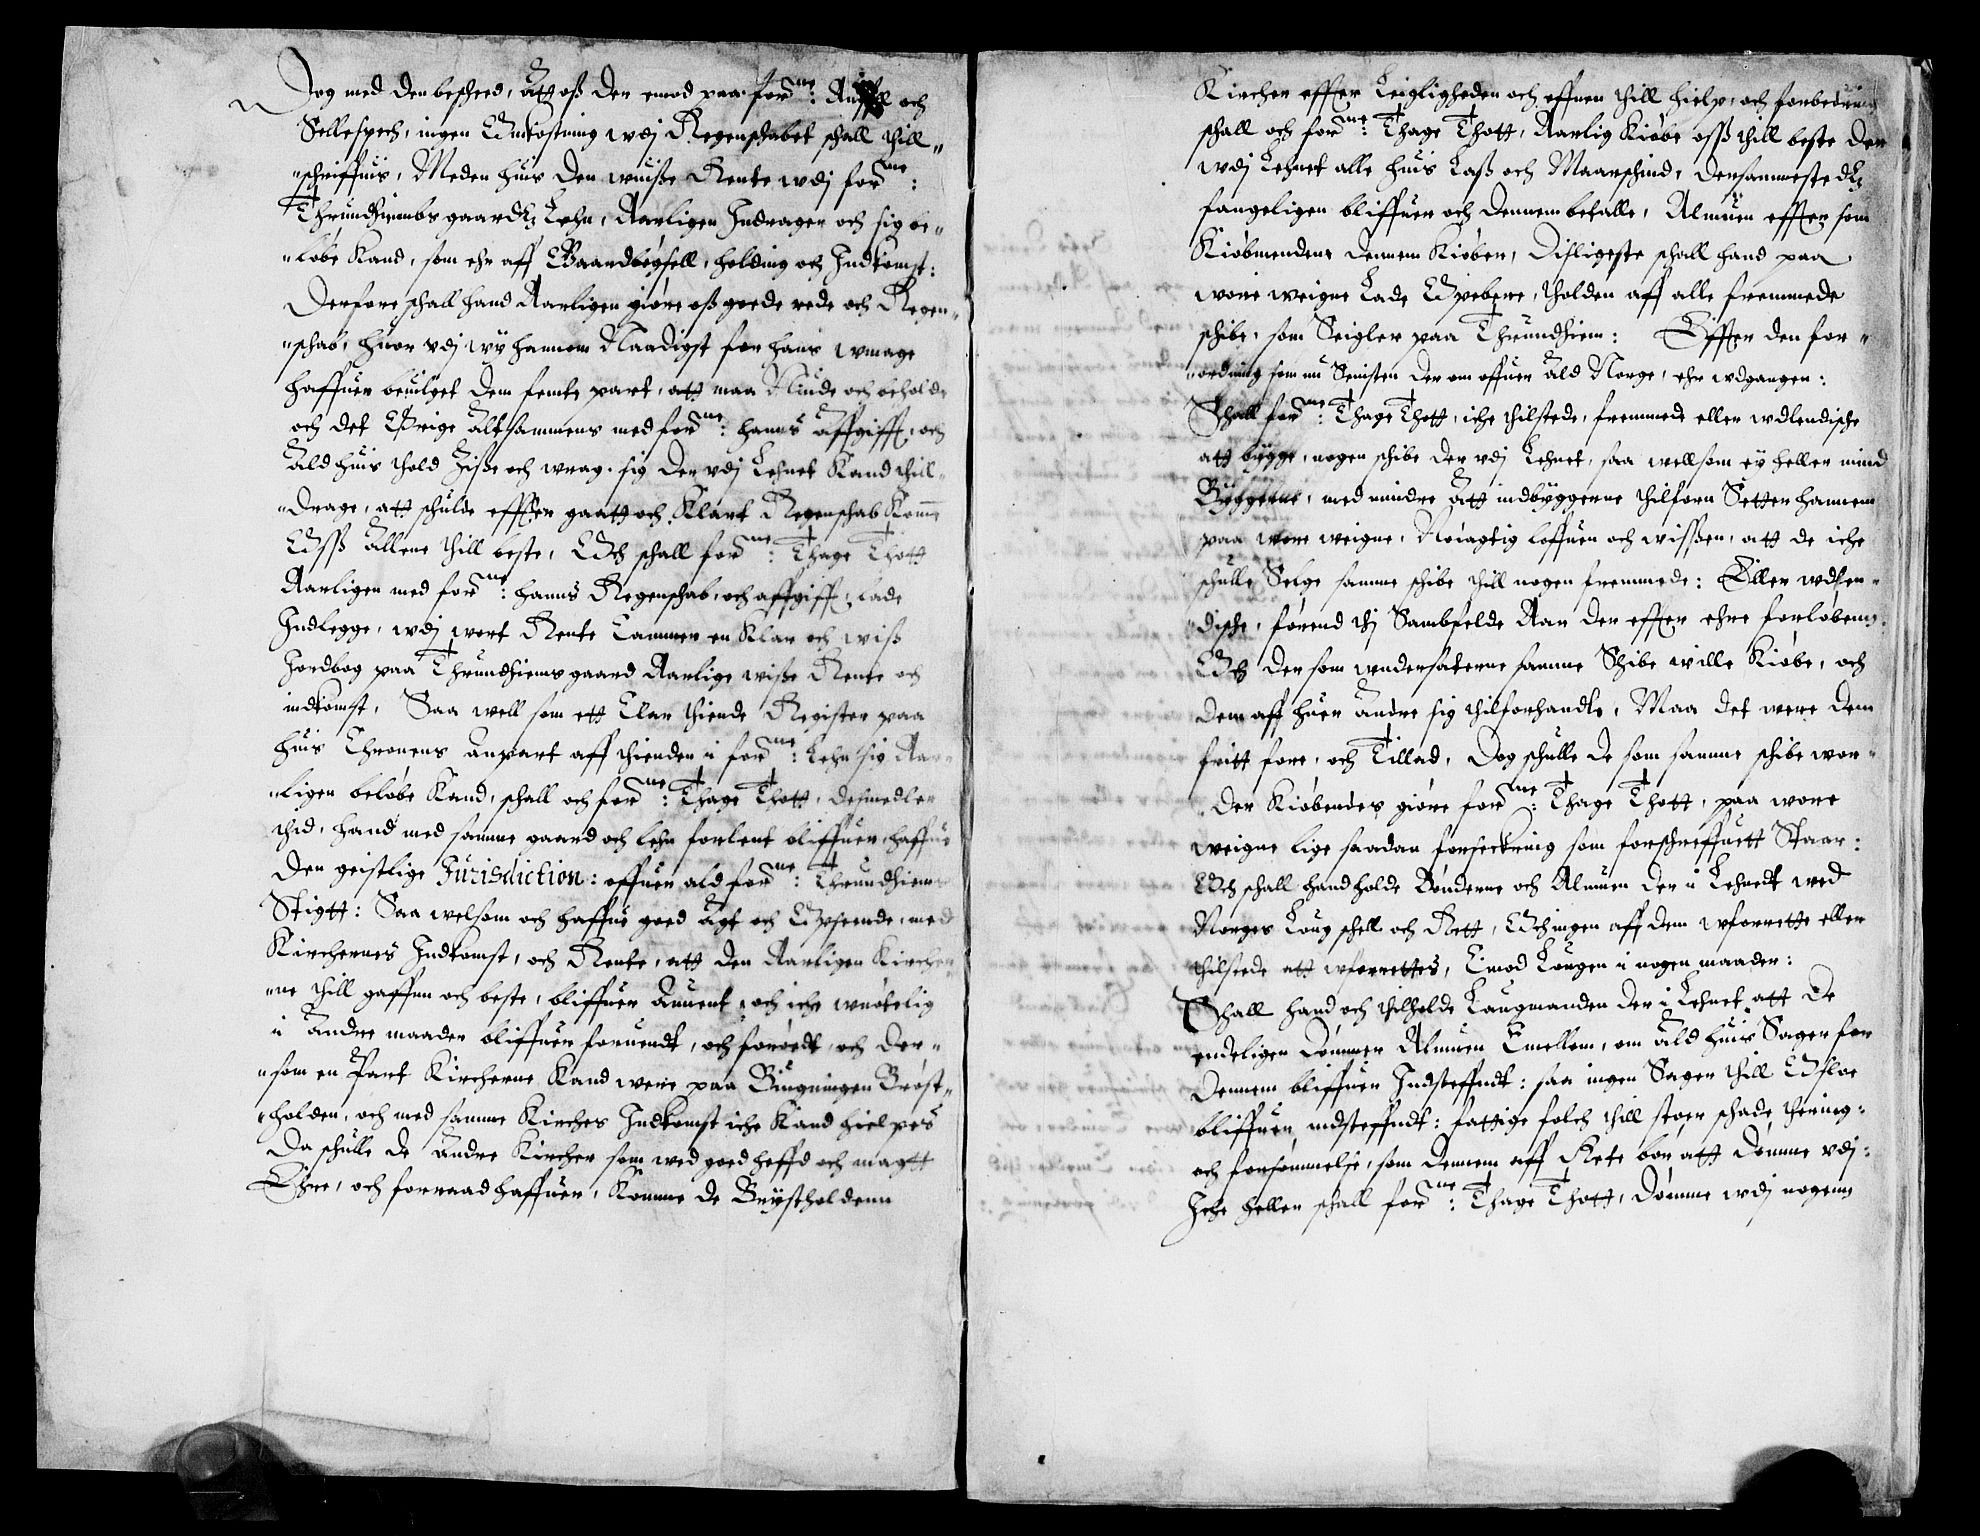 Dog med den bescheed, Att oß der emod paa forne: Anfall och
Sellespech, ingen Wmkostning wdj Regenschabet schall till"
"schriffuis, Meden huis den wuiße Rente wdj forne:
Thrundhiembs gaardz Lehn, Aarligen Indrager och sig be"
"løbe kand, som ehr aff Waardbøgsell, holding och Indkomst:
Derfore schall hand Aarligen giøre oß goede rede och Regen"
"schab, huor vdj wy hannem Naadigst for hans wmage
haffuer beuilget dem femte part, att maa Niude och beholde
och det Øfrige Altsammens med forne: hanns Affgifft, och
Ald huis thold Ziße och wrag, sig der vdj Lehnet kand till"
"drage, att schulde effter gaatt och Klart Regenschab Komme
Wosß Allene till beste, Och schall forne: Thage Thott
Aarligen med forne: hanns Regenschab, och affgifft, lade
Indlegge, wdj wort Rente Cammer en Klar och wiß
Jordbog paa Thrundhiems gaard Aarlige wiße Rente och
indkomst, Saa well som ett Clar thiende Register paa
huis Chronens anpart aff thienden i forne: Lehn sig Aar"
"ligen beløbe kand, schall och forne: Thage Thott, desmedler
thid, hand med samme gaard och lehn forlent bliffuer, haffue
den geistlige Jurisdiction: offuer ald forne: Thrundhiems
Stigtt: Saa welsom och haffue goed Agt och Opseende, med
Kirchernes Indkomst, och Rente, att den Aarligen Kircher"
"ne till gaffun och beste, bliffuer Anuent, och iche wnøtelig
i Andre maader bliffuer foruendt, och forøedt, och der"
"som en Part Kircherne Kand were paa Biugningen Brøst"
"holden, och med samme Kirches Indkomst iche Kand hielpes
Da schulle de Andre Kircher som wed goed heffd och magtt
Ehre, och forraad haffuer, Komme de Brystholdenn
Kircher effter Leigligheden och effnen till hielp, och forbedring
schall och forne: Thage Thott, Aarlig Kiøbe osß till beste der
wdj Lehnet alle huis Laß och Maarschind, dersammestedz
fangeligen bliffuer och dennem befalle, Almuen effter som
Kiøbmendene dennem Kiøber, Disligeste schall hand paa
wore weigne Lade Opebere, tholden aff alle fremmede
schibe, som Seigler paa Thrundhiem: Effter den for"
"ordning som nu Senisten der om offuer ald Norge, ehr wdgangen:
Schall forne: Thage Thott, iche thilstede, fremmede eller wdlendische
att bygge, nogen schibe der vdj Lehnet, saa wellsom ey heller mind
Byggerne, med mindre Att indbyggerne thilforn Setter hannem
paa wore weigne, Nøiagtig loffuen och wisßen, att de iche
schulle Selge samme schibe till nogen fremmede: Eller wdlen"
"dische, førend thj Sambfelde Aar der effter ehre forløbenn,
Och der som wndersaterne samme Schibe wille Kiøbe, och
dem aff huer andre sig thilforhandle, Maa det were dem
fritt fore, och Tillad, Dog schulle de som samme schibe wor"
der Kiøbendes giøre forne: Thage Thott, paa wore
weigne lige saadan forseckring som forschreffuett Staar:
Och schall hand holde Bønderne och Almuen der i Lehnedt wed
Norges Loug schell och Rett, Och ingen aff dem wforrette eller
thilstede att wforrettes, Emod Lougen i nogen maader:
Schall hand och thilholde Laugmanden der i Lehnet, att de
endeligen dømmer Almuen Emellem, om Ald huis Sager for
dennem bliffuer Indsteffndt: saa ingen Sager till Opsloe
bliffuer, indsteffndt: fattige folch till stoer schade thering:
och forsømmelse, som dennem aff Rete bør att dømme vdj:
Iche heller schall forne: Thage Thott, dømme wdj nogenn